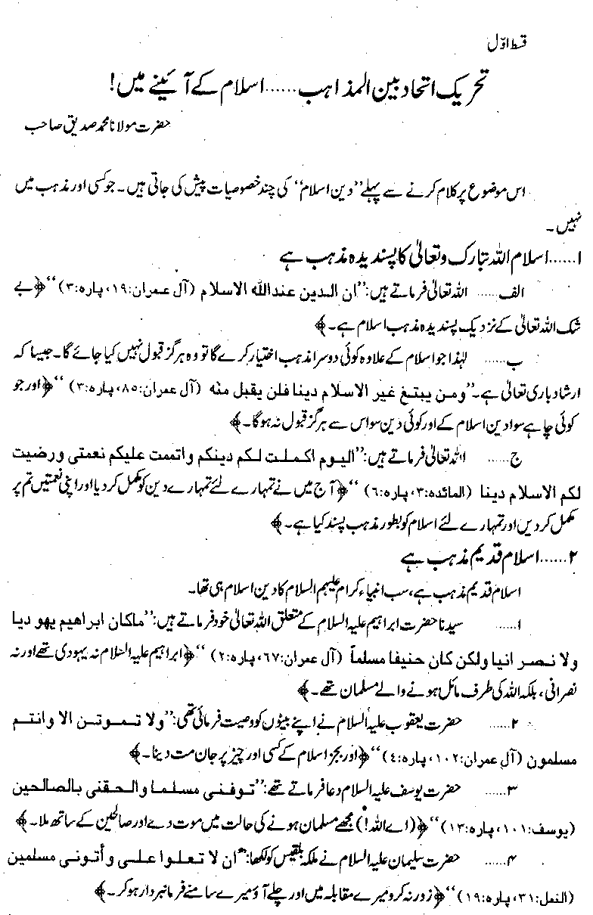 قسط اوّل
تحریک اتحاد بین المذاہب...... اسلام کے آئینے میں!
حضرت مولانا محمد صدیق صاحب
اس موضوع پر کلام کرنے سے پہلے ”دین اسلام“ کی چند خصوصیات پیش کی جاتی ہیں۔ جو کسی اور مذہب میں
نہیں۔
۱...... اسلام اللہ تبارک وتعالیٰ کا پسندیدہ مذہب ہے
الف...... اللہ تعالیٰ فرماتے ہیں: ”ان الدین عنداللہ الاسلام (آل عمران:۱۹، پارہ:۳)“ ﴿بے
شک اللہ تعالیٰ کے نزدیک پسندیدہ مذہب اسلام ہے۔﴾
ب...... لہٰذا جو اسلام کے علاوہ کوئی دوسرا مذہب اختیار کرے گا تو وہ ہرگز قبول نہیں کیا جائے گا۔ جیسا کہ
ارشاد باری تعالیٰ ہے۔ ”ومن یبتغ غیر الاسلام دینا فلن یقبل منه (آل عمران:۸۵، پارہ:۳)“ ﴿اور جو
کوئی چاہے سوا دین اسلام کے اور کوئی دین سو اس سے ہرگز قبول نہ ہوگا۔﴾
ج...... اللہ تعالیٰ فرماتے ہیں: ”الیوم اکملت لکم دینکم واتممت علیکم نعمتی ورضیت
لکم الاسلام دینا (المائدہ:۳، پارہ:۶)“ ﴿آج میں نے تمہارے لئے تمہارے دین کو مکمل کردیا اور اپنی نعمتیں تم پر
مکمل کردیں اور تمہارے لئے اسلام کو بطور مذہب پسند کیا ہے۔﴾
۲...... اسلام قدیم مذہب ہے
اسلام قدیم مذہب ہے، سب انبیاء کرام علیہم السلام کا دین اسلام ہی تھا۔
۱...... سیدنا حضرت ابراہیم علیہ السلام کے متعلق اللہ تعالیٰ خود فرماتے ہیں: ”ماکان ابراھیم یھو دیا
ولا نصر انیا ولکن کان حنیفا مسلماً (آل عمران:۶۷، پارہ:۲)“ ﴿ابراہیم علیہ السلام نہ یہودی تھے اور نہ
نصرانی، بلکہ اللہ کی طرف مائل ہونے والے مسلمان تھے۔﴾
۲...... حضرت یعقوب علیہ السلام نے اپنے بیٹوں کو وصیت فرمائی تھی: ”ولا تموتن الا وانتم
مسلمون (آل عمران:۱۰۲، پارہ:۴)“ ﴿اور بجز اسلام کے کسی اور چیز پر جان مت دینا۔﴾
۳...... حضرت یوسف علیہ السلام دعا فرماتے تھے: ”توفنی مسلما والحقنی بالصالحین
(یوسف:۱۰۱، پارہ:۱۳)“ ﴿(اے اللہ!) مجھے مسلمان ہونے کی حالت میں موت دے اور صالحین کے ساتھ ملا۔﴾
۴...... حضرت سلیمان علیہ السلام نے ملکہ بلقیس کو لکھا: ”ان لا تعلوا علی وأتونی مسلمین
(النمل:۳۱، پارہ:۱۹)“ ﴿زور نہ کرو میرے مقابلہ میں اور چلے آؤ میرے سامنے فرمانبردار ہو کر۔﴾